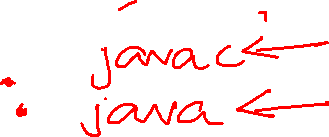 javac
java